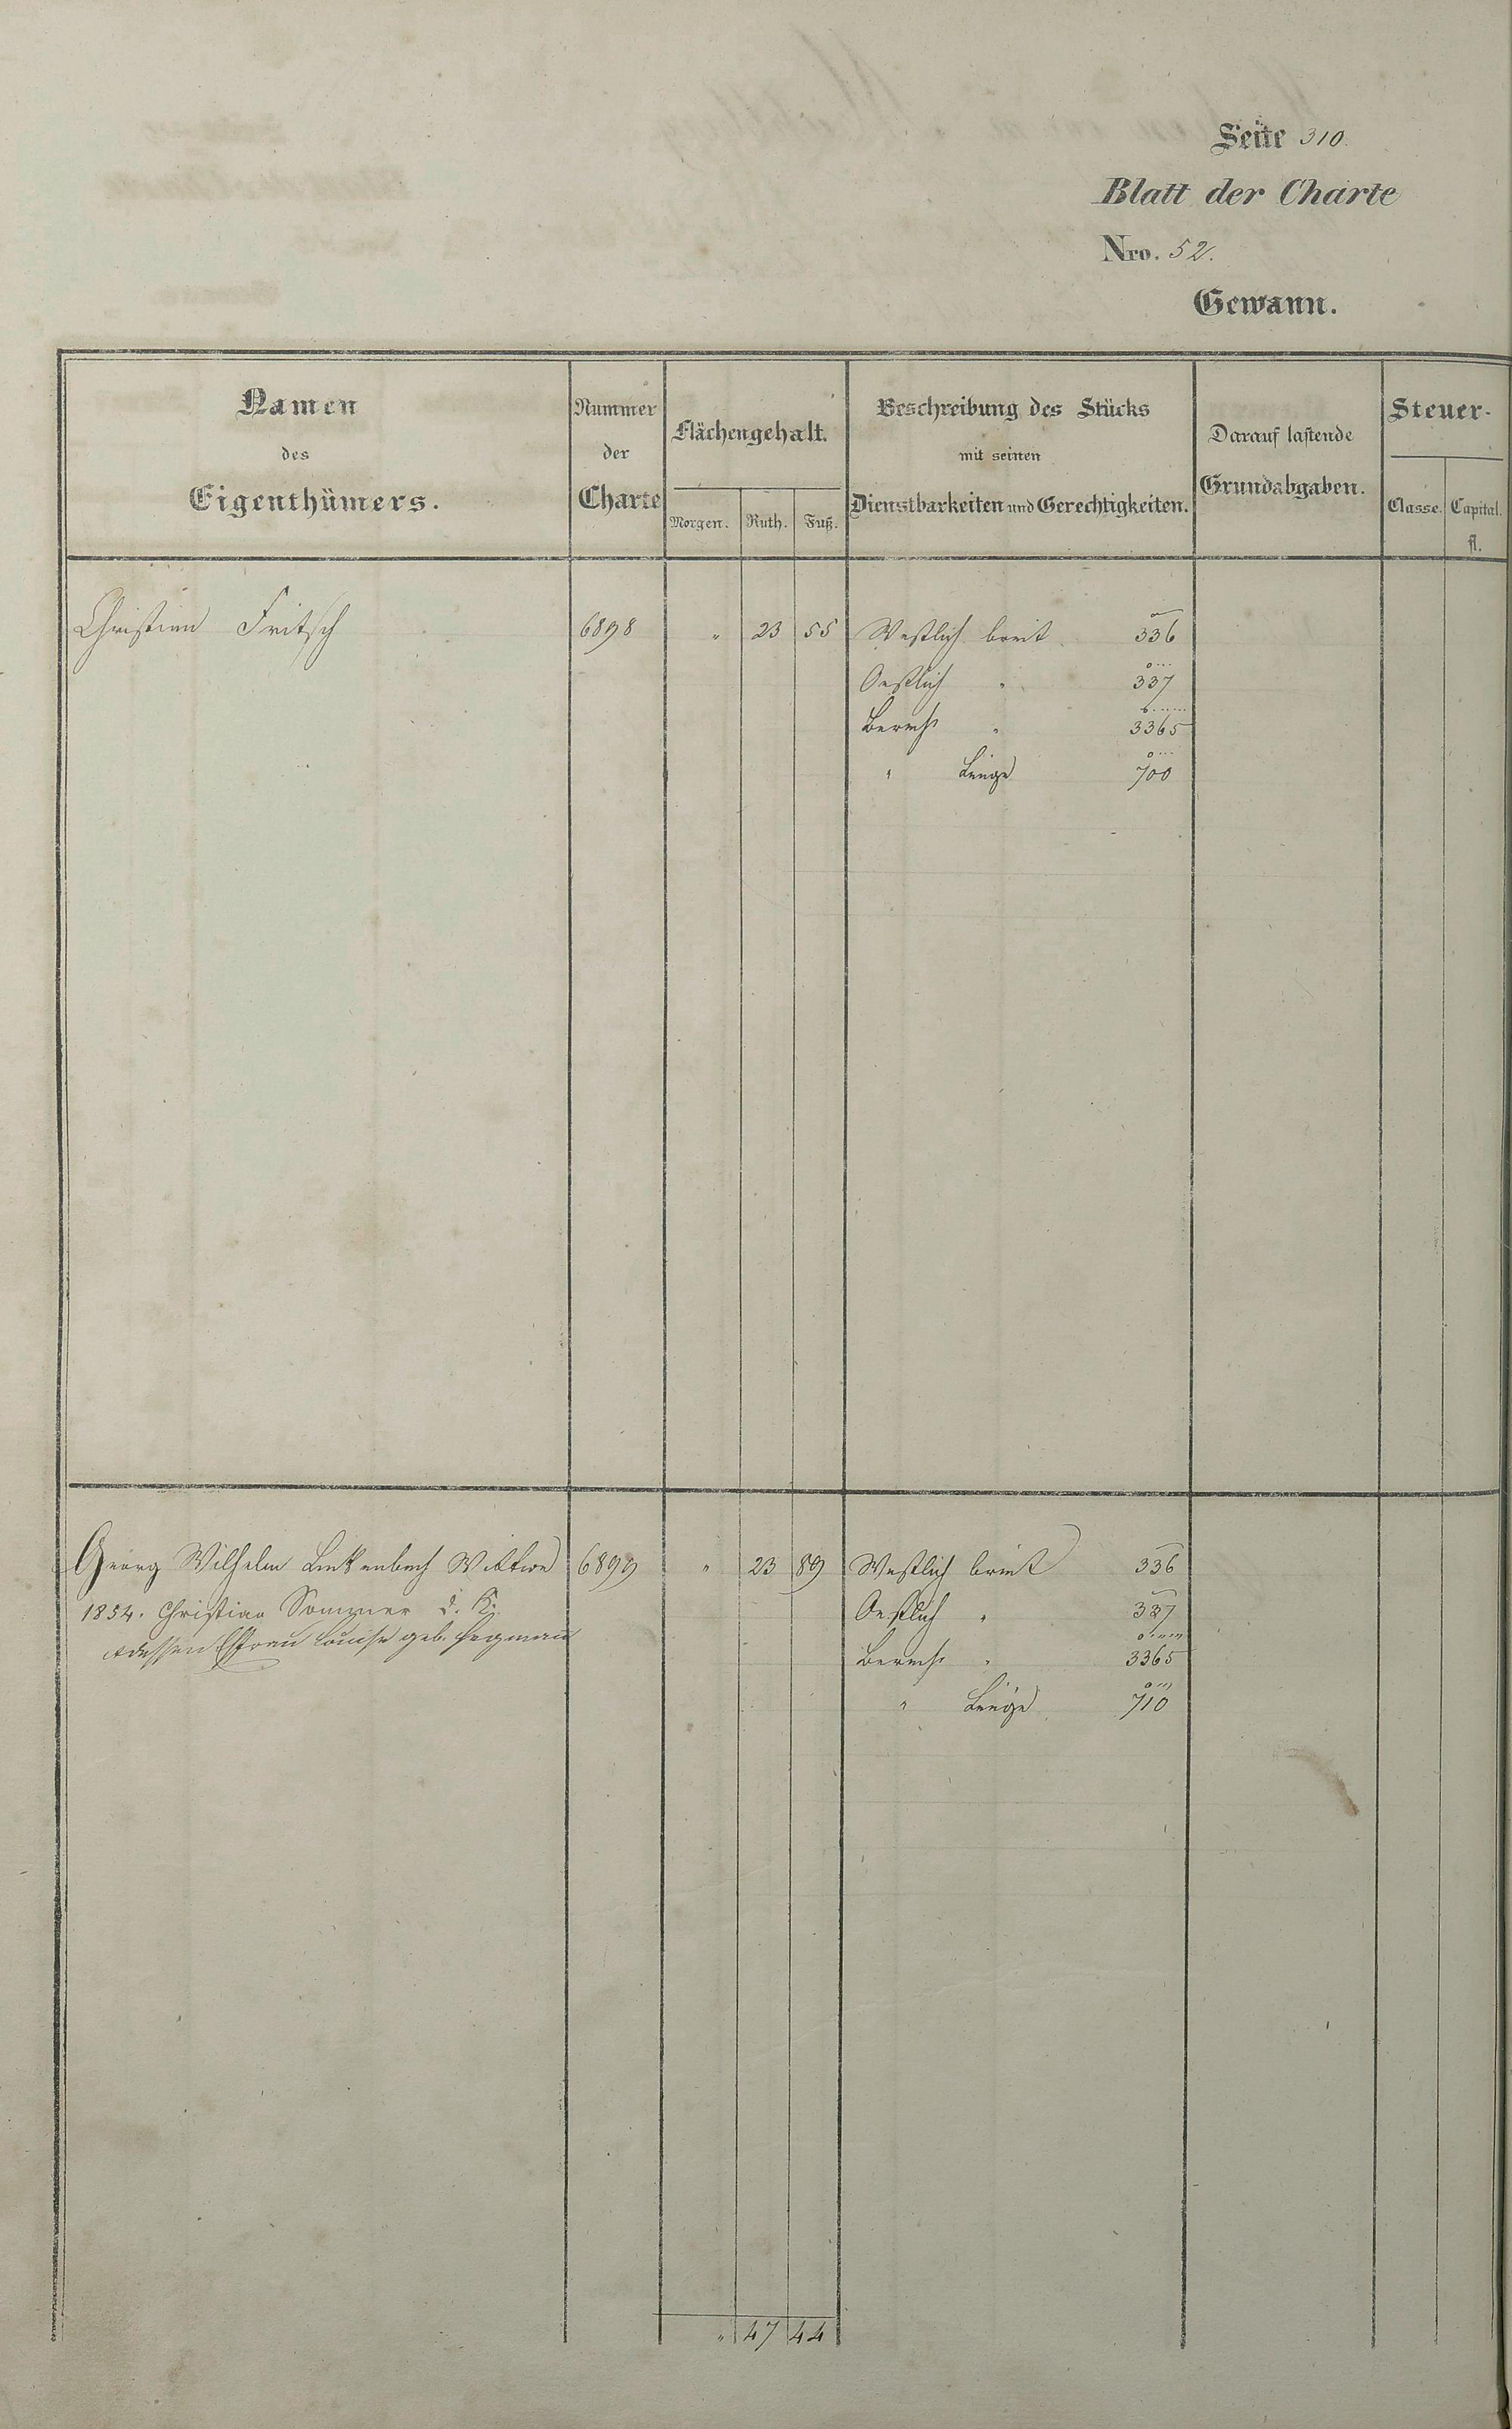 Seite 310.
Blatt der Charte
Nro. 52.
Gewann.
Namen des Eigenthümers.
Nummer der Charte
Flächengehalt.
Morgen. Ruth. Fuß.
Beschreibung des Stücks mit seinen Dienstbarkeiten und Gerechtigkeiten.
Darauf lastende Grundabgaben.
Steuer-
Classe. Capital. fl.
Christian Fritsch 6898 " 23 55 Westlich breit 336
Oestlich " 337
Berechn " 3365
" Länge 700
Georg Wilhelm Wittwe 6899 " 23 89 Westlich breit 336
1854. Christian Sommer d. K. Oestlich " 337
dessen Ehfrau Louise geb.
Berechn " 3365
" Länge 710
" 47 44